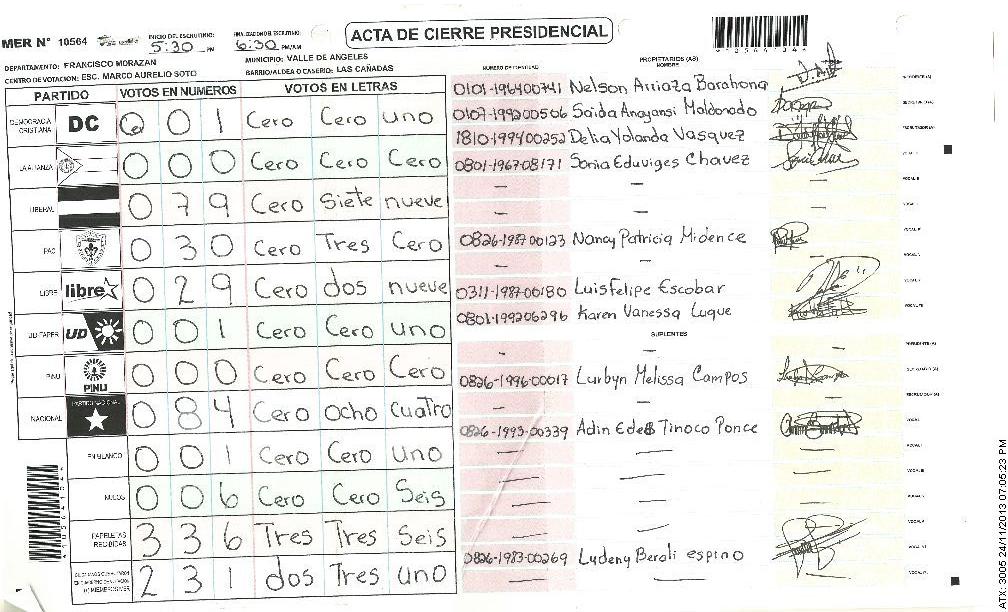 ACTA DE CIERRE PRESIDENCIAL
MER N° 10564
INICIO DEL ESCRUTINIO: 5:30 PM
FINALIZACION DEL ESCRUTINIO: 6:30 PM/AM
DEPARTAMENTO: FRANCISCO MORAZAN
MUNICIPIO: VALLE DE ANGELES
CENTRO DE VOTACION: ESC. MARCO AURELIO SOTO
BARRIO/ALDEA O CASERIO: LAS CAÑADAS
PARTIDO VOTOS EN NUMEROS VOTOS EN LETRAS
DEMOCRACIA CRISTIANA DC 0 0 1 Cero Cero uno
LA ALIANZA 0 0 0 Cero Cero Cero
LIBERAL 0 7 9 Cero Siete nueve
PAC 0 3 0 Cero Tres Cero
LIBRE libre 0 2 9 Cero dos nueve
UD-FAPER UD 0 0 1 Cero Cero uno
PINU PINU 0 0 0 Cero Cero Cero
NACIONAL PARTIDO NACIONAL 0 8 4 Cero ocho cuatro
EN BLANCO 0 0 1 Cero Cero uno
NULOS 0 0 6 Cero Cero Seis
PAPELETAS RECIBIDAS 3 3 6 Tres Tres Seis
2 3 1 dos Tres uno
NUMERO DE IDENTIDAD
PROPIETARIOS (AS)
NOMBRE
0101-196400741 Nelson Arriaza Barahona
0107-199200506 Saida Anayansi Maldonado
1810-199400252 Delia Yolanda Vasquez
0801-1967-08171 Sonia Eduviges Chavez
— —
— —
0826-1987-00123 Nancy Patricia Midence
— —
0311-1987-00180 Luis Felipe Escobar
0801-199206296 Karen Vanessa Luque
SUPLENTES
— —
0826-1996-00017 Lurbyn Melissa Campos
— —
0826-1993-00339 Adin Edel Tinoco Ponce
— —
— —
— —
0826-1983-00269 Ludeny Berali espino
— —
ATX: 3005 24/11/2013 07:05:23 PM